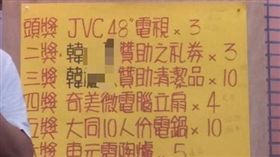 頭獎 JVC 48"電視 × 3
二獎 韓 贊助之礼券 × 3
三獎 韓 贊助清潔品 × 10
四獎 奇美微電腦立扇 × 4
五獎 大同10人份電鍋 × 10
六獎 東元電陶爐 × 5